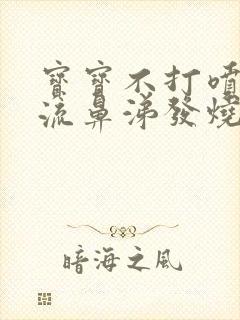 寶寶不打噴
流鼻涕發燒
暗海之風